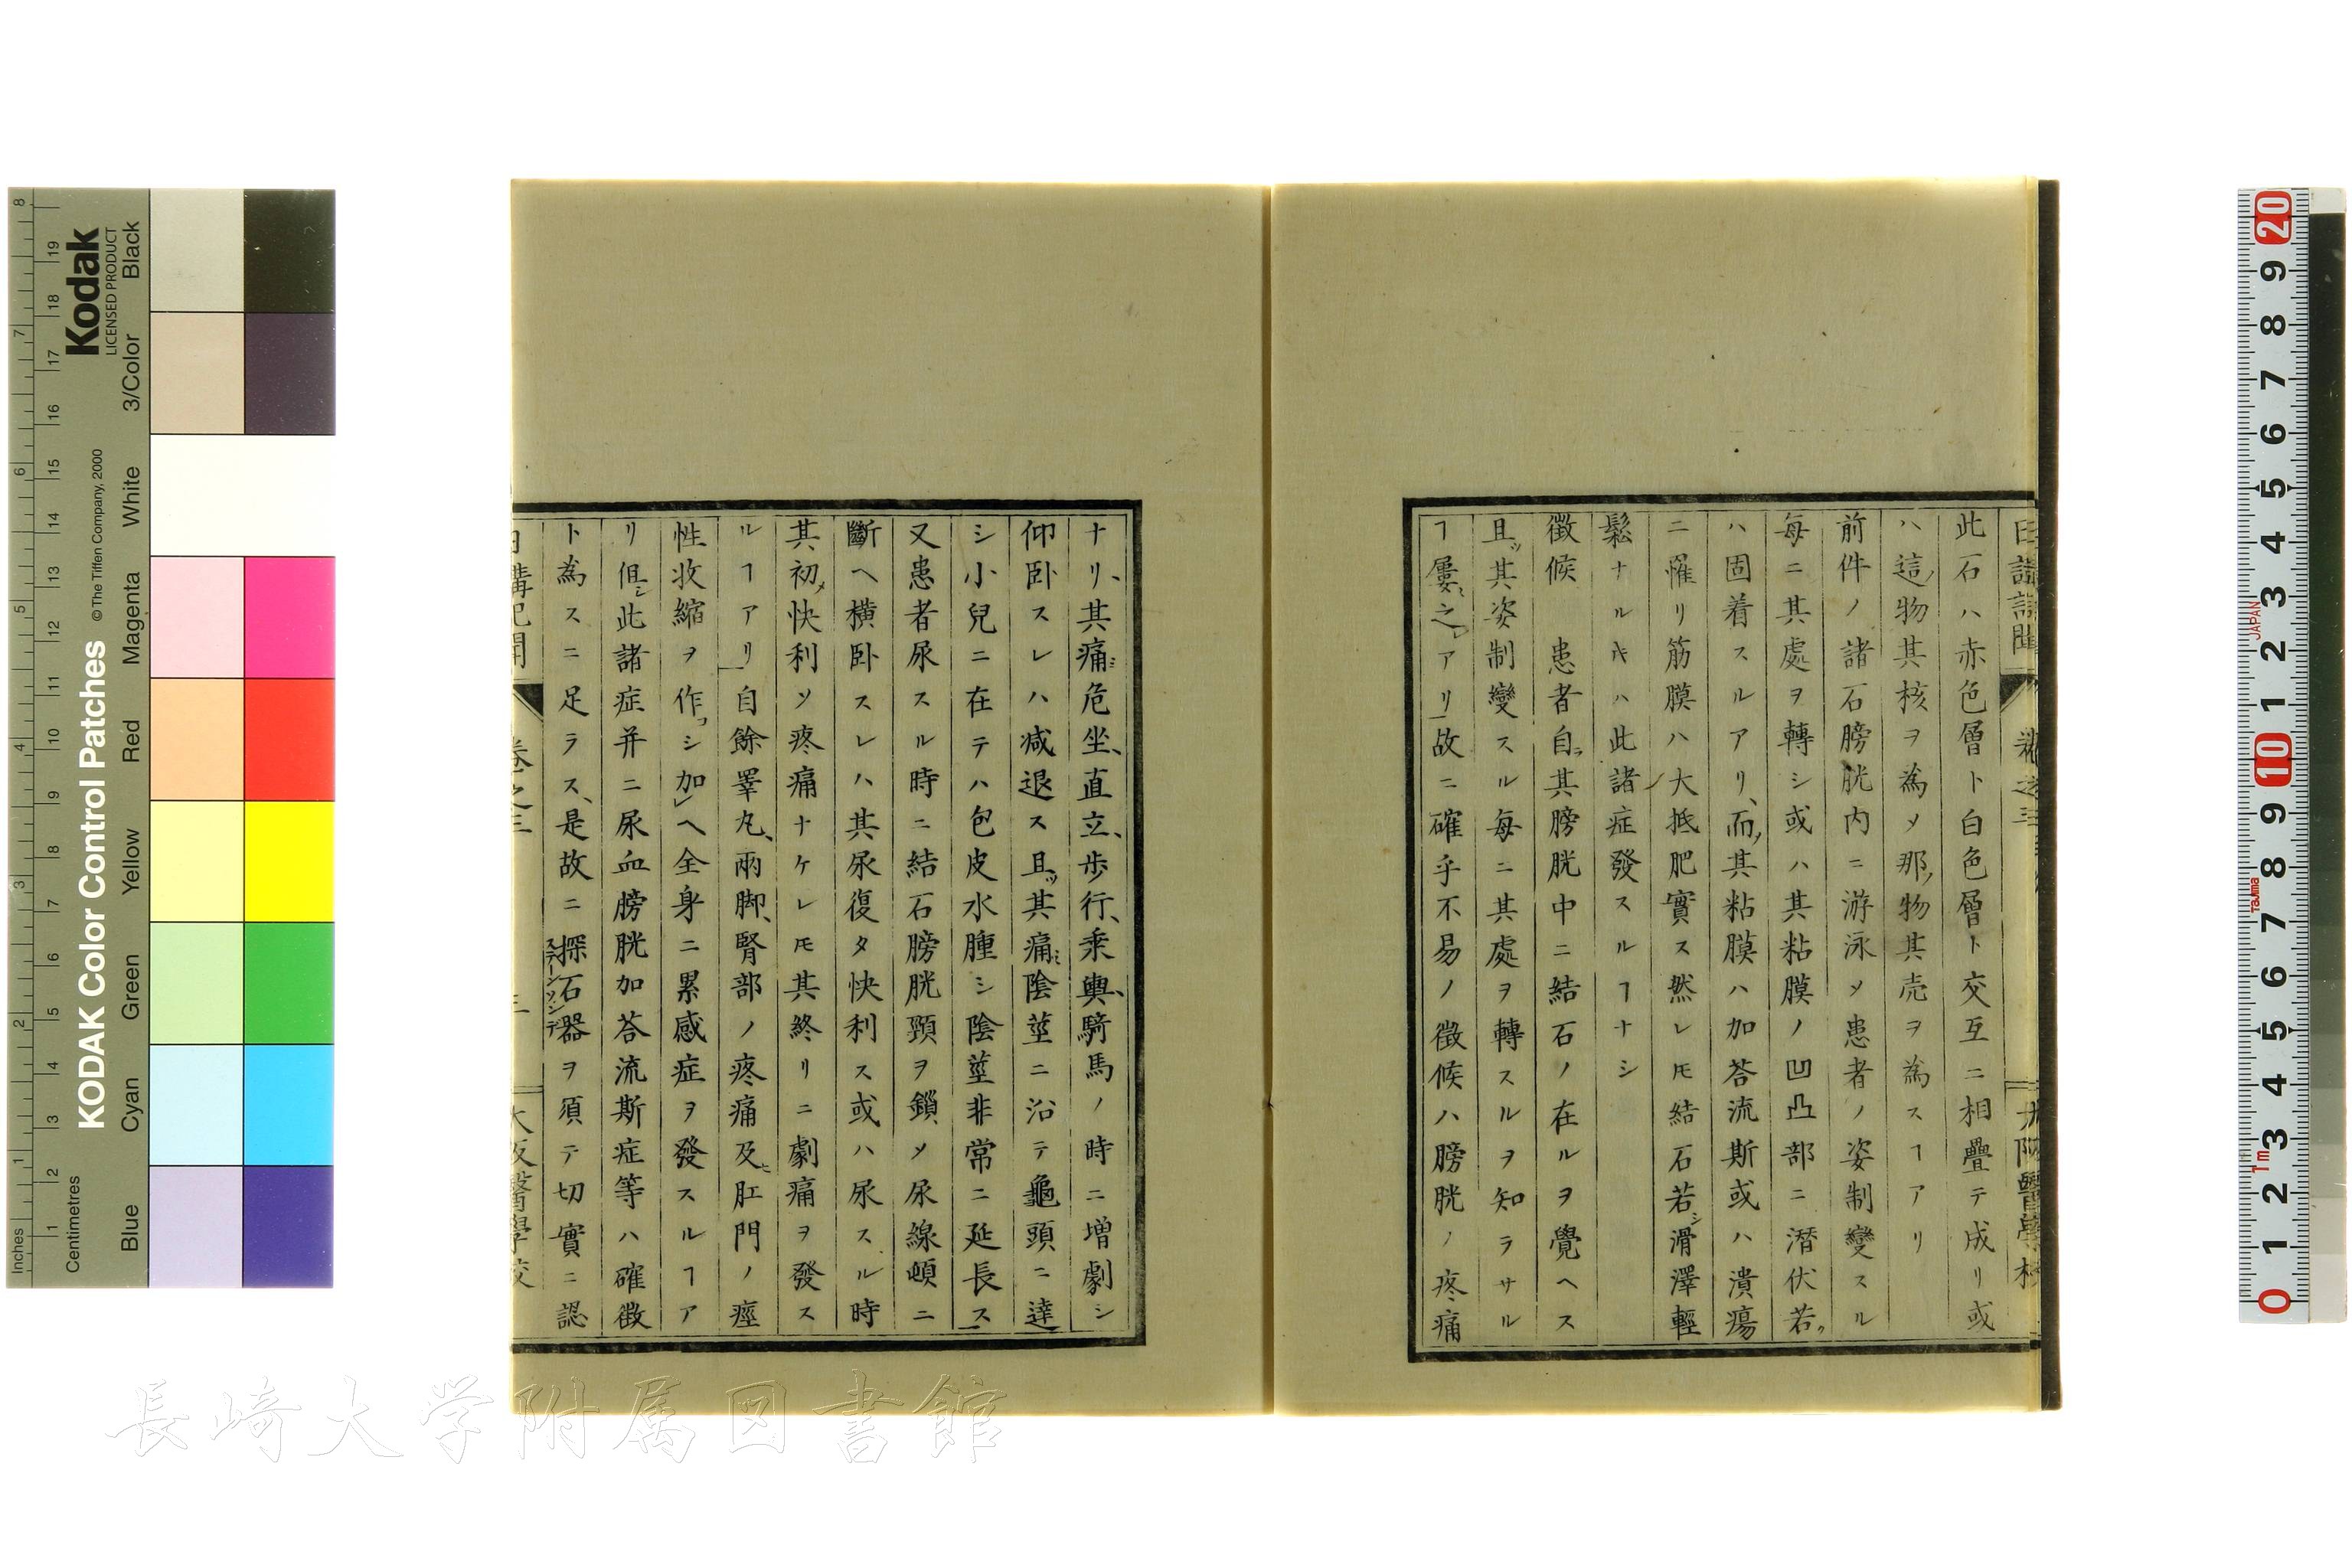 此石ハ赤色層ト白色層ト交互ニ相疊テ成リ或
ハ這ノ物其核ヲ為メ那ノ物其売ヲ為スヿアリ
前件ノ諸石膀胱内ニ游泳メ患者ノ姿制變スル
每ニ其處ヲ轉シ或ハ其粘膜ノ凹凸部ニ潜伏若ク
ハ固着スルアリ、而ノ其粘膜ハ加荅流斯或ハ潰瘍
ニ罹リ筋膜ハ大抵肥實ス然レ𪜈結石若シ滑澤輕
鬆ナルキハ此諸症發スルヿナシ
徴候 患者自ラ其膀胱中ニ結石ノ在ルヲ覺ヘス
且ツ其姿制變スル每ニ其處ヲ轉スルヲ知ラサル
ヿ屢之レアリ故ニ確乎不易ノ徴候ハ膀胱ノ疼痛
ナリ、其痛ミ危坐、直立、歩行、乘輿、騎馬ノ時ニ増劇シ
仰卧スレハ减退ス且ツ其痛ミ陰莖ニ沿テ龜頭ニ達
シ小兒ニ在テハ包皮水腫シ陰莖非常ニ延長ス
又患者尿スル時ニ結石膀胱頸ヲ鎖メ尿線頓ニ
斷ヘ橫卧スレハ其尿復タ快利ス或ハ尿スル時
其初メ快利ソ疼痛ナケレ𪜈其終リニ劇痛ヲ發ス
ルヿアリ自餘睪丸、兩脚、腎部ノ疼痛及ヒ肛門ノ痙
性收縮ヲ作コシ加ヘ全身ニ累感症ヲ發スルヿア
リ但シ此諸症并ニ尿血膀胱加荅流斯症等ハ確徴
ト為スニ足ラス、是故ニ探石器ヲ須テ切實ニ認
日講記聞 卷之三 三 大阪醫學校
長崎大学附属図書館
KODAK Color Control Patches
© The Tiffen Company, 2000
Kodak
LICENSED PRODUCT
Inches
Centimetres
Blue Cyan Green Yellow Red Magenta White 3/Color Black
JAPAN
Tajima
1m